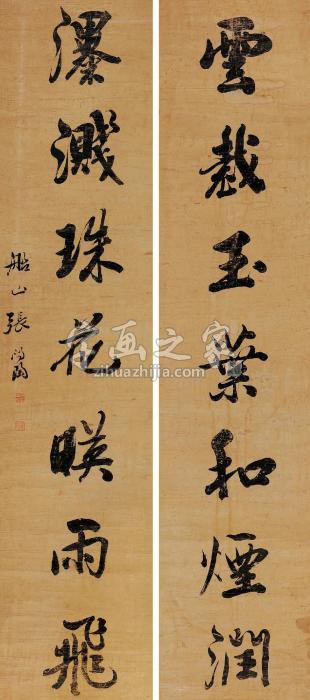 雲裁玉葉和煙潤
瀑濺珠花暎雨飛
船山張問陶
字画之家
zihuazhijia.com